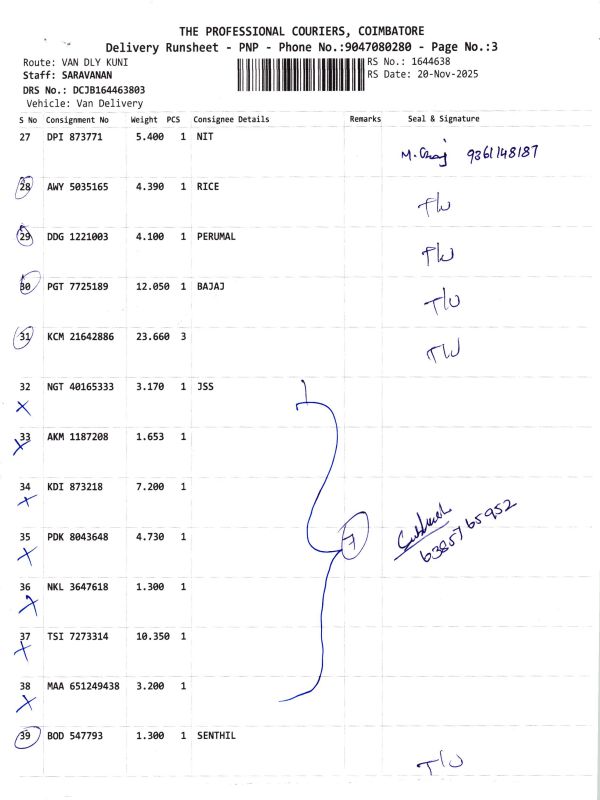 THE PROFESSIONAL COURIERS, COIMBATORE
Delivery Runsheet - PNP - Phone No.:9047080280 - Page No.:3
Route: VAN DLY KUNI RS No.: 1644638
Staff: SARAVANAN RS Date: 20-Nov-2025
DRS No.: DCJB164463803
Vehicle: Van Delivery
S No Consignment No Weight PCS Consignee Details Remarks Seal & Signature
27 DPI 873771 5.400 1 NIT
9361148187
28 AWY 5035165 4.390 1 RICE
T/U
29 DDG 1221003 4.100 1 PERUMAL
T/U
30 PGT 7725189 12.050 1 BAJAJ
T/U
31 KCM 21642886 23.660 3
T/U
32 NGT 40165333 3.170 1 JSS
33 AKM 1187208 1.653 1
34 KDI 873218 7.200 1
35 PDK 8043648 4.730 1
7 6385765952
36 NKL 3647618 1.300 1
37 TSI 7273314 10.350 1
38 MAA 651249438 3.200 1
39 BOD 547793 1.300 1 SENTHIL
T/U